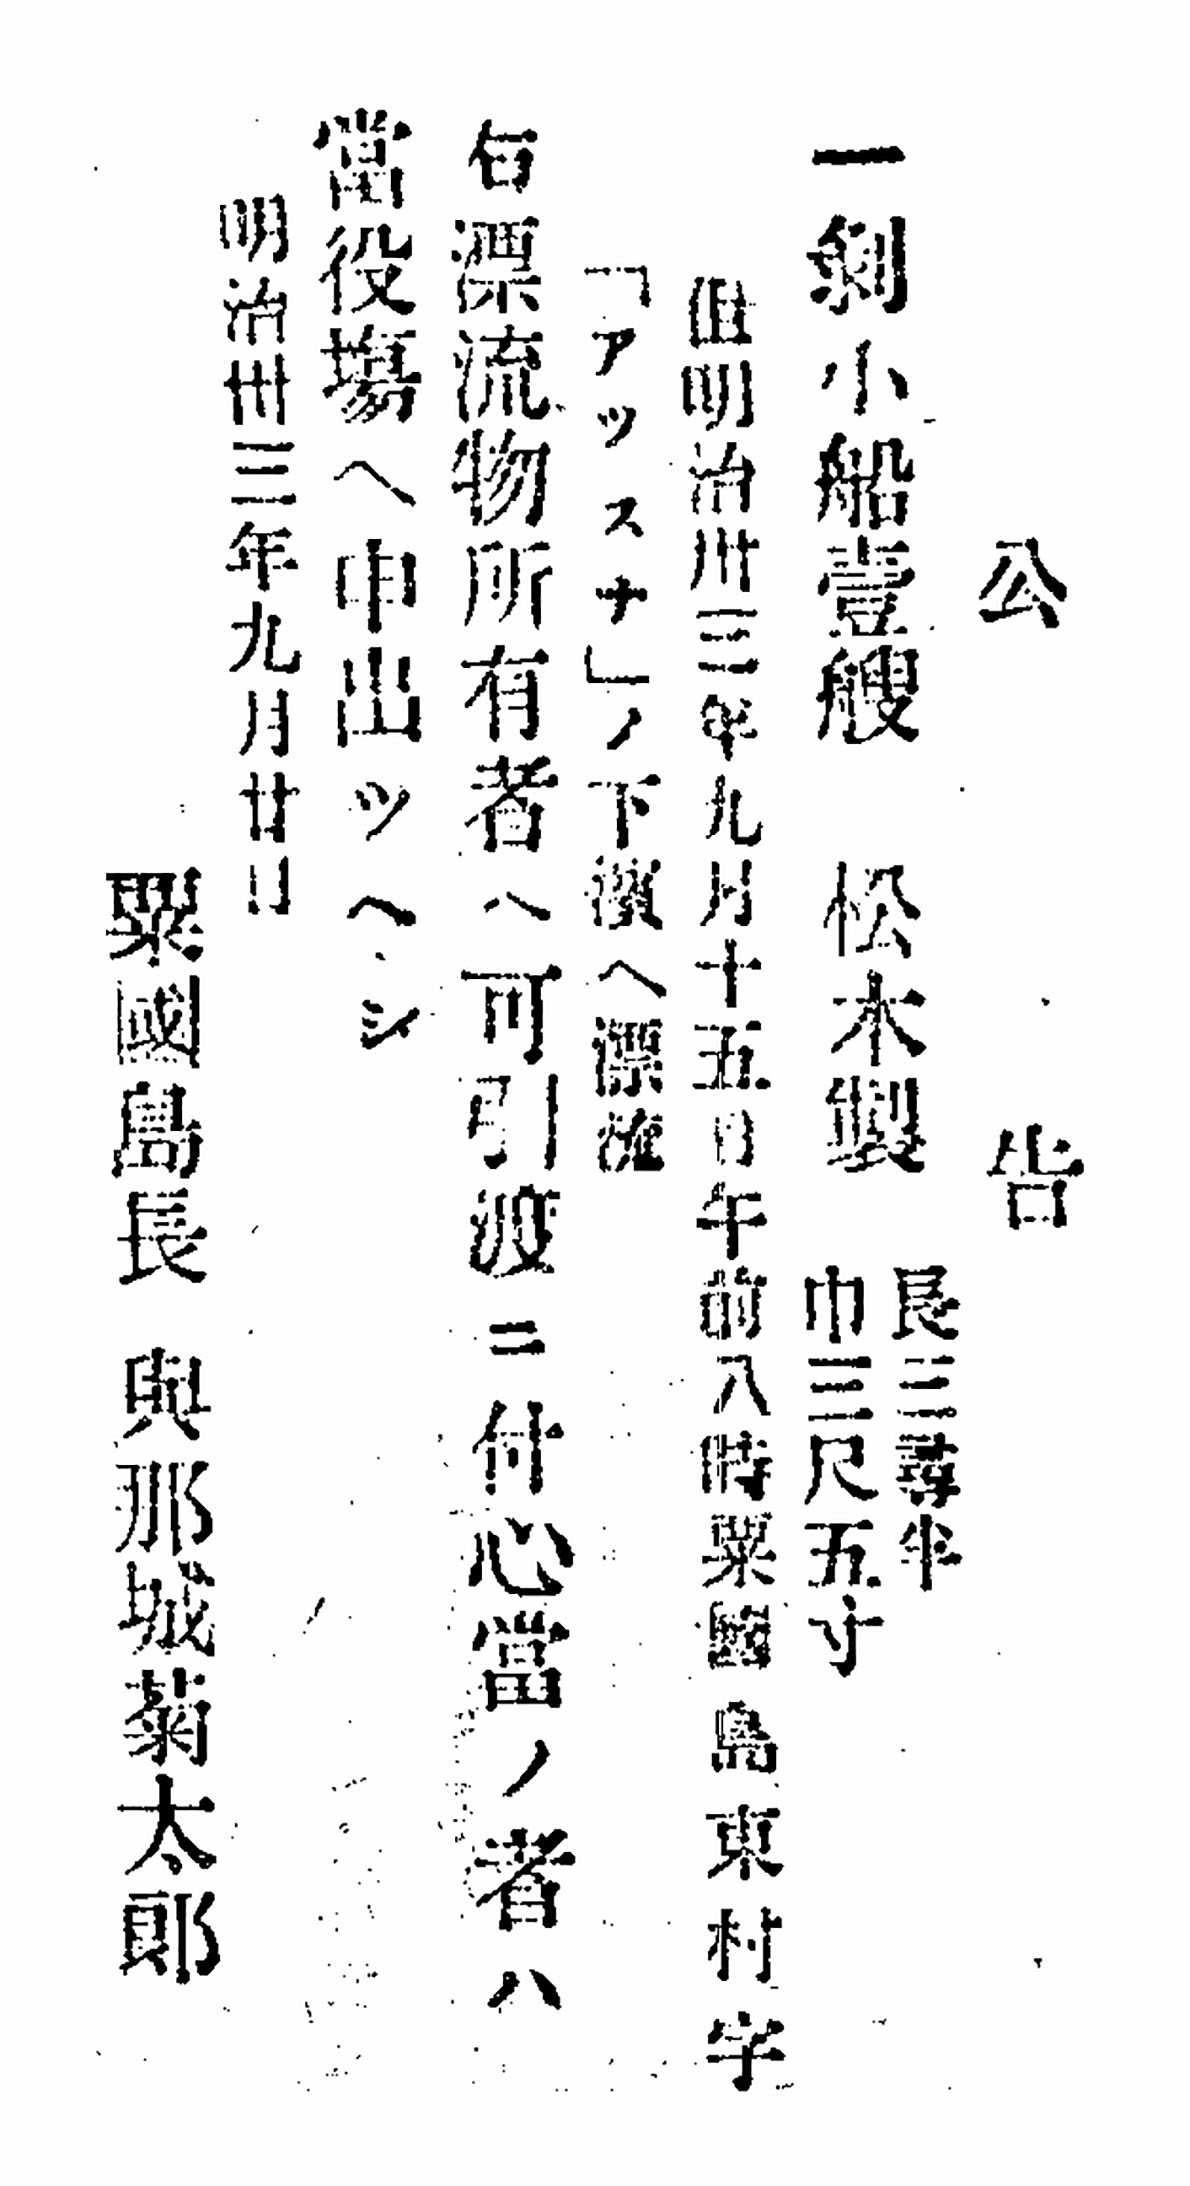 公告
一剝小船壹艘 松木製 長三尋半
巾三尺五寸
但明治卅三年九月十五日午前八時粟國島東村字
「アッスナ」ノ下濱ヘ漂流
右漂流物所有者ヘ可引渡ニ付心當ノ者ハ
當役塲ヘ申出ツヘシ
明治卅三年九月廿日
粟國島長 與那城菊太郎